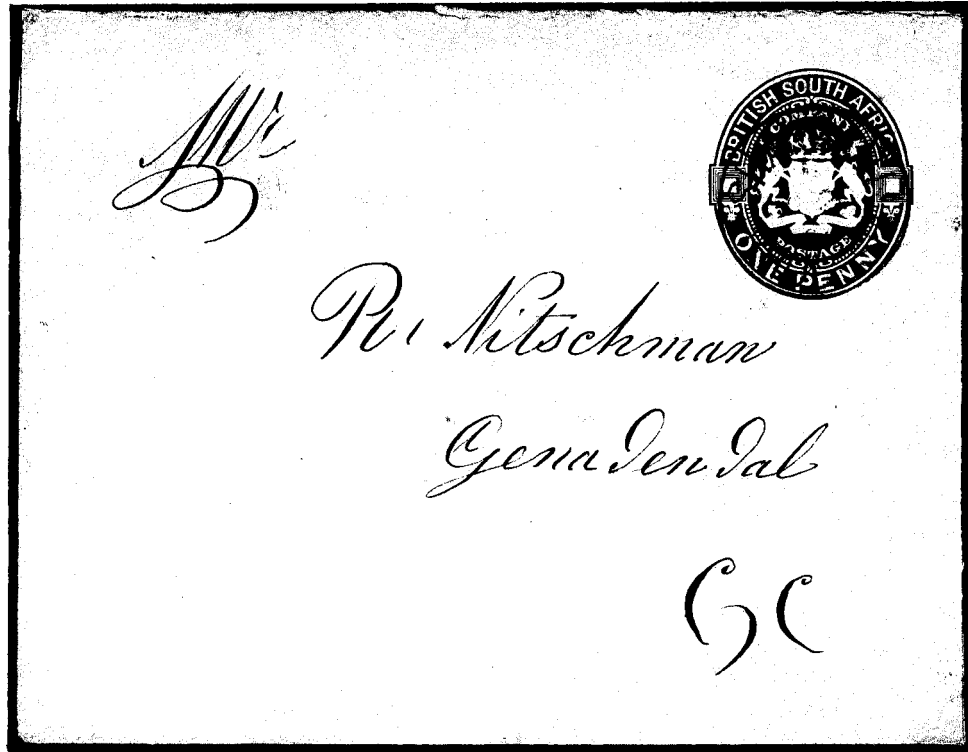 BRITISH SOUTH AFRICA
COMPANY
POSTAGE
ONE PENNY
Mr
Nitschman
Genadendal
CC